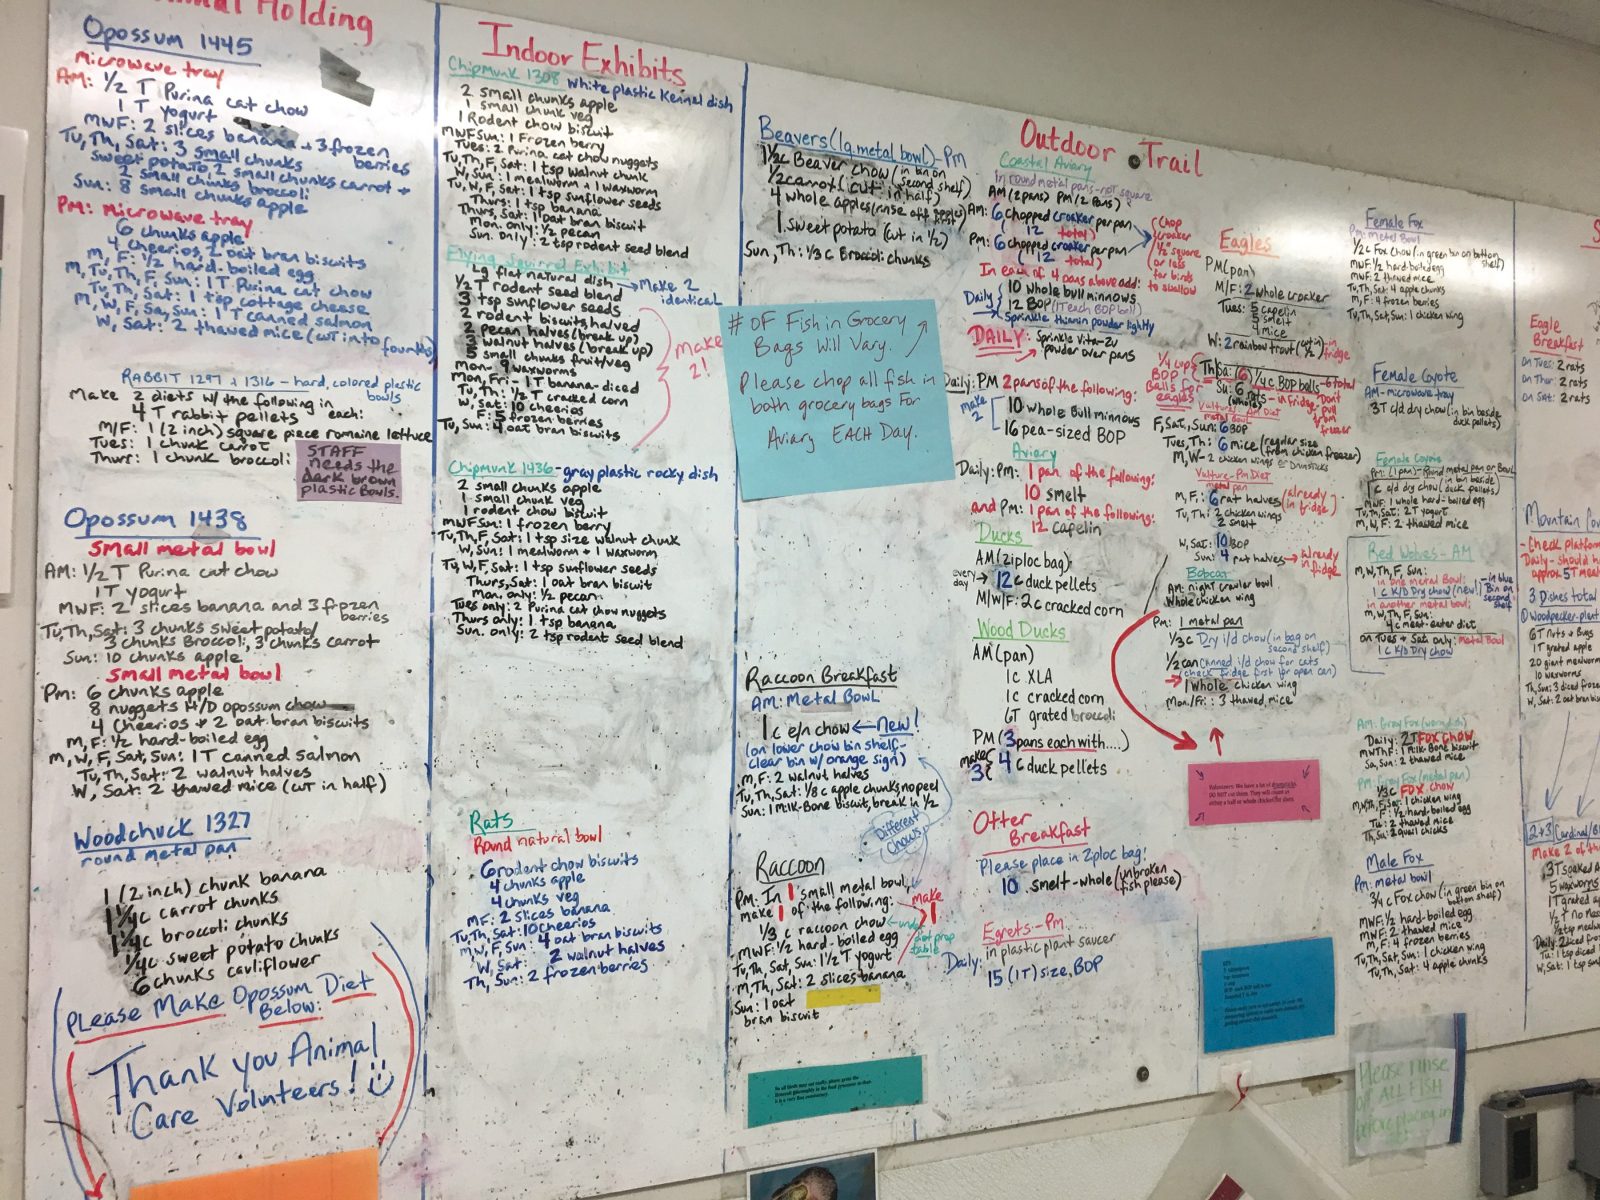 Animal Holding
Opossum 1445
Microwave tray
AM: 1/2 T Purina cat chow
1 T yogurt
MWF: 2 slices banana + 3 frozen berries
Tu, Th, Sat: 3 small chunks
sweet potato, 2 small chunks carrot +
2 small chunks broccoli
Sun: 8 small chunks apple
PM: Microwave tray
6 chunks apple
4 cheerios, 2 oat bran biscuits
M, F: 1/2 hard-boiled egg
M, Tu, Th, F, Sun: 1 T Purina cat chow
Tu, Th, Sat: 1 tsp cottage cheese
M, W, F, Sa, Sun: 1 T canned salmon
W, Sat: 2 thawed mice (cut into fourths)
RABBIT 1297 + 1316 - hard, colored plastic bowls
Make 2 diets w/ the following in each:
4 T rabbit pellets
M/F: 1 (2 inch) square piece romaine lettuce
Tues: 1 chunk carrot
Thurs: 1 chunk broccoli
STAFF
needs the
dark brown
plastic Bowls.
Opossum 1438
Small metal bowl
AM: 1/2 T Purina cat chow
1 T yogurt
MWF: 2 slices banana and 3 frozen berries
Tu, Th, Sat: 3 chunks sweet potato/
3 chunks Broccoli, 3 chunks carrot
Sun: 10 chunks apple
Small metal bowl
PM: 6 chunks apple
8 nuggets H/D opossum chow
4 Cheerios + 2 oat bran biscuits
M, F: 1/2 hard-boiled egg
M, W, F, Sat, Sun: 1 T canned salmon
Tu, Th, Sat: 2 walnut halves
W, Sat: 2 thawed mice (cut in half)
Woodchuck 1327
round metal pan
1 (2 inch) chunk banana
1 1/4 c carrot chunks
1 1/4 c broccoli chunks
1/4 c sweet potato chunks
6 chunks cauliflower
Please Make Opossum Diet
Below:
Thank you Animal
Care Volunteers!
Indoor Exhibits
Chipmunk 1308 white plastic Kennel dish
2 small chunks apple
1 small chunk veg
1 Rodent chow biscuit
MWF Sun: 1 Frozen berry
Tues: 2 Purina cat chow nuggets
Tu, Th, F, Sat: 1 tsp walnut chunk
W, Sun: 1 mealworm + 1 waxworm
Tu, W, F, Sat: 1 tsp sunflower seeds
Thurs: 1 tsp banana
Thurs, Sat: 1 oat bran biscuit
Mon. only: 1/2 pecan
Sun. only: 2 tsp rodent seed blend
Flying Squirrel Exhibit
Lg flat natural dish → Make 2 identical
1/2 T rodent seed blend
3 tsp sunflower seeds
2 rodent biscuits, halved
2 pecan halves (break up)
3 walnut halves (break up)
5 small chunks fruit/veg
Mon - 9 waxworms
Mon, Fri - 1 T banana-diced
Tu, Th: 1/2 T cracked corn
W, Sat: 10 cheerios
F: 5 frozen berries
Tu, Sun: 4 oat bran biscuits
Make 2!
Chipmunk 1436 - gray plastic rocky dish
2 small chunks apple
1 small chunk veg
1 rodent chow biscuit
MWF Sun: 1 frozen berry
Tu, Th, F, Sat: 1 tsp size walnut chunk
W, Sun: 1 mealworm + 1 waxworm
Tu, W, F, Sat: 1 tsp sunflower seeds
Thurs, Sat: 1 oat bran biscuit
Mon. only: 1/2 pecan
Tues only: 2 Purina cat chow nuggets
Thurs only: 1 tsp banana
Sun. only: 2 tsp rodent seed blend
Rats
Round natural bowl
6 rodent chow biscuits
4 chunks apple
4 chunks veg
MF: 2 slices banana
Tu, Th, Sat: 10 cheerios
M, W, F, Sun: 4 oat bran biscuits
W, Sat: 2 walnut halves
Th, Sun: 2 frozen berries
Outdoor Trail
Beavers (lg. metal bowl) - PM
1 1/2 c Beaver chow (in bin on second shelf)
1/2 carrot (cut in half)
4 whole apples (rinse off apples first)
1 sweet potato (cut in 1/2)
Sun, Th: 1/3 c Broccoli chunks
# of Fish in Grocery
Bags Will Vary.
Please chop all fish in
both grocery bags For
Aviary EACH Day.
Raccoon Breakfast
AM: Metal Bowl
1 c e/n chow ← New!
(on lower chow bin shelf-
clear bin w/ orange sign)
M, F: 2 walnut halves
Tu, Th, Sat: 1/8 c apple chunks, no peel
Sun: 1 Milk-Bone biscuit, break in 1/2
Different Chows
Raccoon
PM: In 1 small metal bowl,
make 1 of the following:
make 1
1/3 c raccoon chow
under diet prep table
MWF: 1/2 hard-boiled egg
Tu, Th, Sat, Sun: 1 1/2 T yogurt
M, Th, Sat: 2 slices banana
Sun: 1 oat
bran biscuit
Coastal Aviary
in round metal pans - not square
AM (2 pans) PM (2 pans)
AM: 6 chopped croaker per pan
(12 total)
PM: 6 chopped croaker per pan
(12 total)
Chop croaker 1/2" square or less for birds to swallow
In each of 4 pans above add:
Daily
10 whole bull minnows
12 BOP (1 T each BOP ball)
Sprinkle thiamin powder lightly
DAILY: Sprinkle Vita-Zu
powder over pans
Daily: PM 2 pans of the following:
make 2
10 whole Bull minnows
16 pea-sized BOP
Aviary
Daily: PM: 1 pan of the following:
10 smelt
and PM: 1 pan of the following:
12 capelin
Ducks
AM (ziploc bag)
every day → 12 c duck pellets
M/W/F: 2 c cracked corn
Wood Ducks
AM (pan)
1 c XLA
1 c cracked corn
6T grated broccoli
PM (3 pans each with....)
make 3
4 c duck pellets
Otter
Breakfast
Please place in ziploc bag!
10 smelt-whole (unbroken fish please)
Egrets - PM
in plastic plant saucer
Daily: 15 (1T) size, BOP
Eagles
PM (pan)
M/F: 2 whole croaker
Tues: 5 capelin
5 smelt
4 mice
W: 2 rainbow trout (cut in 1/2) in fridge
1/4 cup BOP balls for eagles
Th, Sa: (6) 1/4 c BOP balls - 6 total
Su: 6 rats - in fridge
Don't pull from freezer
Vulture - AM Diet
metal bowl
F, Sat, Sun: 6 BOP
Tues, Th: 6 mice (regular size from chicken freezer)
M, W - 2 chicken wings or drumsticks
Vulture - PM Diet
metal pan
M, F: 6 rat halves (already in fridge)
Tu, Th: 2 chicken wings
2 smelt
W, Sat: 10 BOP
Sun: 4 rat halves → already in fridge
Bobcat
AM: night crawler bowl
Whole chicken wing
PM: 1 metal pan
1/3 c Dry i/d chow (in bag on second shelf)
1/2 can canned i/d chow for cats
(check fridge first for open can)
1 whole chicken wing
Mon./Fri.: 3 thawed mice
Volunteers: We have a lot of drumsticks.
DO NOT cut them. They will count as
either a half or whole chicken for them.
Female Fox
PM: Metal Bowl
1/2 c Fox Chow (in green bin on bottom shelf)
MWF: 1/2 hard-boiled egg
MWF: 2 thawed mice
Tu, Th, Sat: 4 apple chunks
M, F: 4 frozen berries
Tu, Th, Sat, Sun: 1 chicken wing
Female Coyote
AM - microwave tray
3 T c/d dry chow (in bin beside duck pellets)
Female Coyote
PM: (1 pan) - Round metal pan or Bowl
1 c c/d dry chow (in bin beside duck pellets)
MWF: 1 whole hard-boiled egg
Tu, Th, Sat: 2 T yogurt
M, W, F: 2 thawed mice
Red Wolves - AM
M, W, Th, F, Sun:
in one metal Bowl:
1 c K/D Dry chow (new!) - in blue Bin on second shelf
in another metal bowl:
M, W, Th, F, Sun:
4 c meat-eater diet
on Tues + Sat only: Metal Bowl
1 c K/D Dry chow
Daily: 2T FOX CHOW
MWThF: 1 Milk-Bone biscuit
Sa, Sun: 2 thawed mice
PM: Gray Fox (metal pan)
1/3 c FOX chow
M, W, Th, F, Sat: 1 chicken wing
F: 1/2 hard-boiled egg
Tu: 2 thawed mice
Th, Su: 2 quail chicks
Male Fox
PM: metal bowl
3/4 c Fox chow (in green bin on bottom shelf)
MWF: 1/2 hard-boiled egg
MWF: 2 thawed mice
M, F: 4 frozen berries
Tu, Th, Sat, Sun: 1 chicken wing
Tu, Th, Sat: 4 apple chunks
Please rinse
off ALL FISH
before placing in
Eagle
Breakfast
on Tues: 2 rats
on Thur: 2 rats
on Sat: 2 rats
Mountain
- Check platform
Daily - should h
approx 5T meal
3 Dishes total
Woodpecker-plant
6T nuts + Bugs
1T grated apple
20 giant mealworms
10 waxworms
Th, Sun: 3 diced froze
W, Sat: 2 oat bran bis
2+3 Cardinal/
Make 2 of the
3T soaked
5 waxworms
1T grated